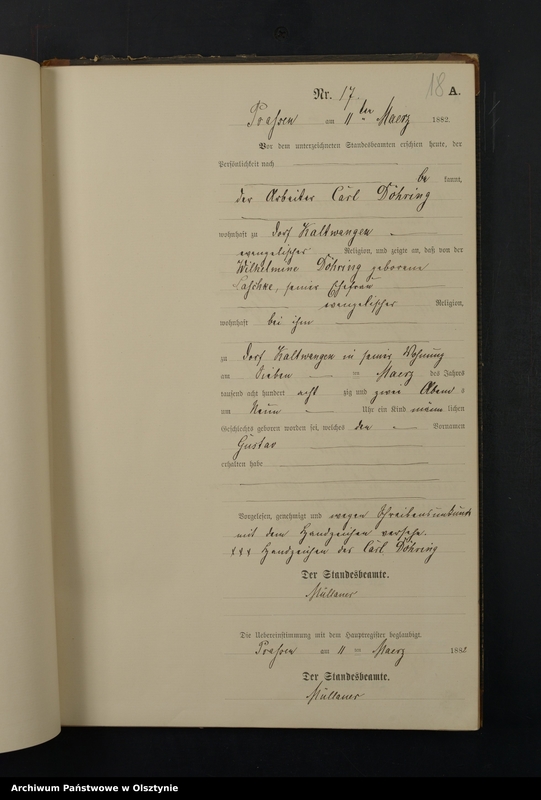 18
Nr. 17. A.
Prassen am 11ten Maerz 1882.
Vor dem unterzeichneten Standesbeamten erschien heute, der
Persönlichkeit nach
be kannt,
der Arbeiter Carl Döhring
wohnhaft zu Dorf Kaltwangen
evangelischer Religion, und zeigte an, daß von der
Wilhelmine Döhring geborene
seiner Ehefrau
evangelischer Religion,
wohnhaft bei ihm
zu Dorf Kaltwangen in seiner Wohnung
am Sieben ten Maerz des Jahres
tausend acht hundert acht zig und zwei Abend s
um Neun Uhr ein Kind männ lichen
Geschlechts geboren worden sei, welches den Vornamen
Gustav
erhalten habe
Vorgelesen, genehmigt und wegen Schreibensunkunde
mit dem Handzeichen versehn.
+++ Handzeichen des Carl Döhring
Der Standesbeamte.
Die Uebereinstimmung mit dem Hauptregister beglaubigt.
Prassen am 11 ten Maerz 188
Der Standesbeamte.
Archiwum Państwowe w Olsztynie